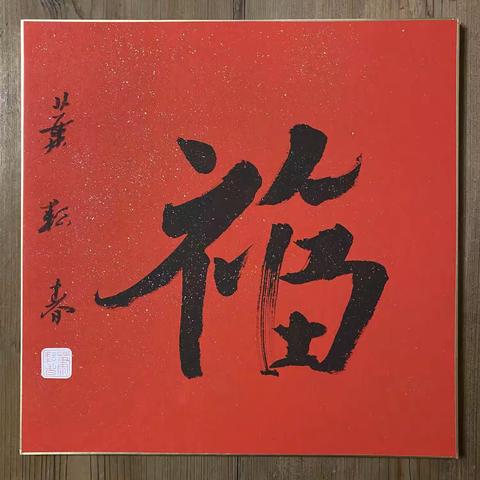 福
葉耘春